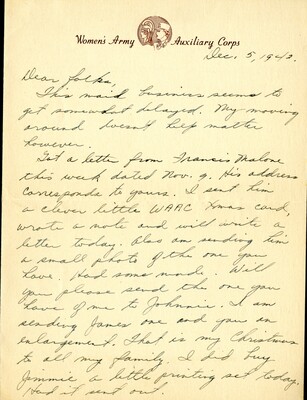 Women's Army Auxiliary Corps
Dec. 5, 1942.
Dear folks,
This mail business seems to
get somewhat delayed. My moving
around doesn't help matter
however.
Got a letter from Francis Malone
this week dated Nov. 9. His address
corresponds to yours. I sent him
a clever little WAAC Xmas card,
wrote a note and will write a
letter today. Also am sending him
a small photo of the one you
have. Had some made. Will
you please send the one you
have of me to Johnnie. I am
sending James one and you an
enlargement. That is my Christmas
to all my family. I did buy
Jimmie a little printing set today.
Had it sent out.